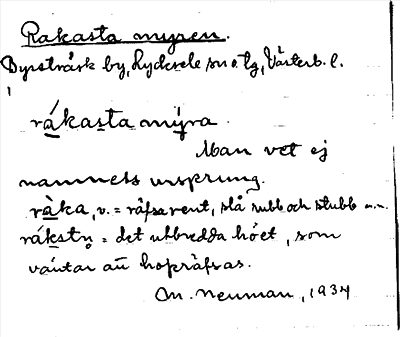 Rakasta myren.
Byrsträsk by, Lycksele sn o tg, Västerb. l.
rákasta mýra.
Man vet ej
namnets ursprung.
ràka, v. = räfsa rent, slå rubb och stubb m.m.
rákstn̥ = det utbredda höet, som
väntar att hopräfsas.
M. Neuman, 1934